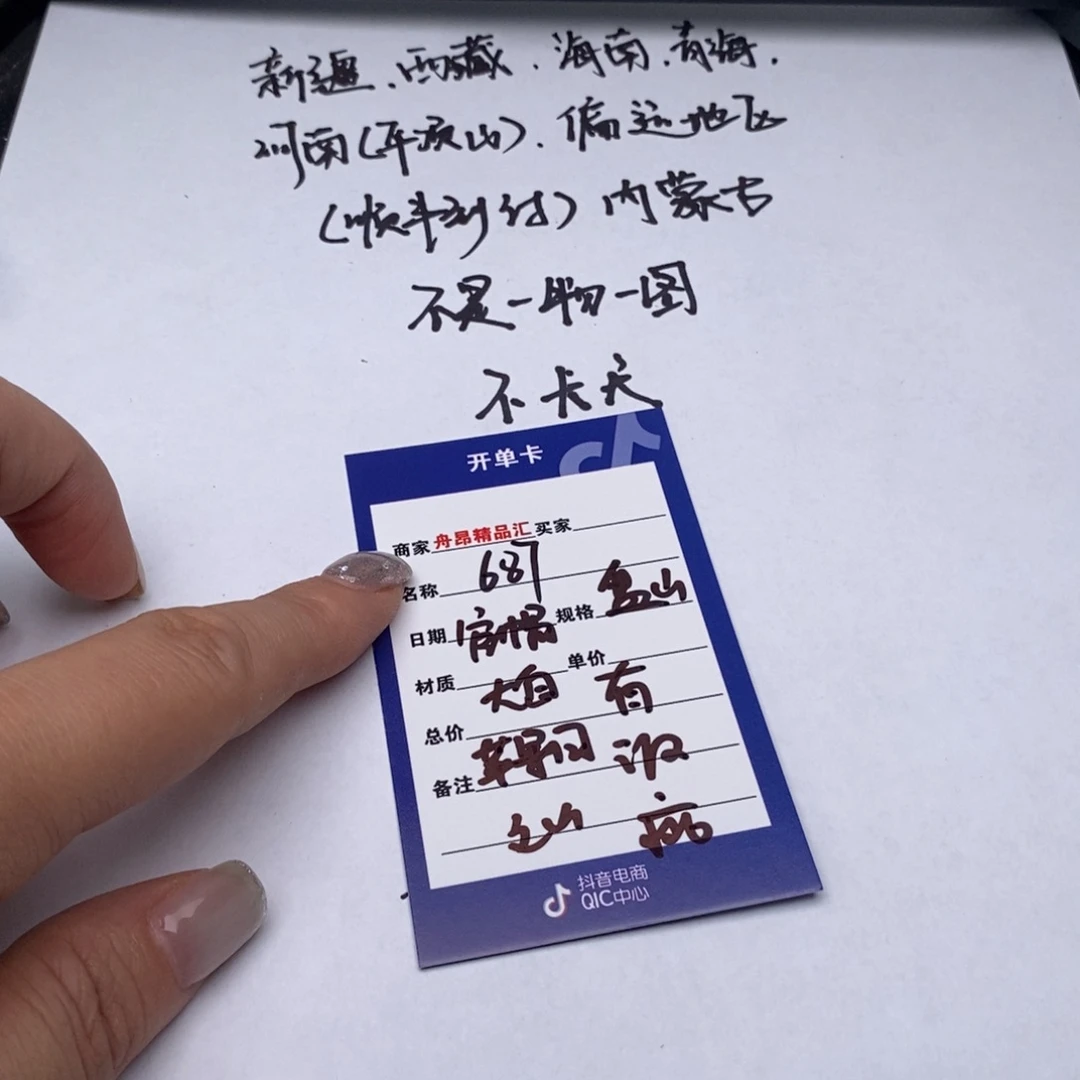 新疆、西藏、海南、青海、
河南(平顶山)、偏远地区
(顺丰到付)内蒙古
不是一物一图
不卡天
开单卡
商家 舟昂精品汇 买家
名称 687
日期 规格
材质 单价
总价 大白 有
备注
抖音电商
QIC中心